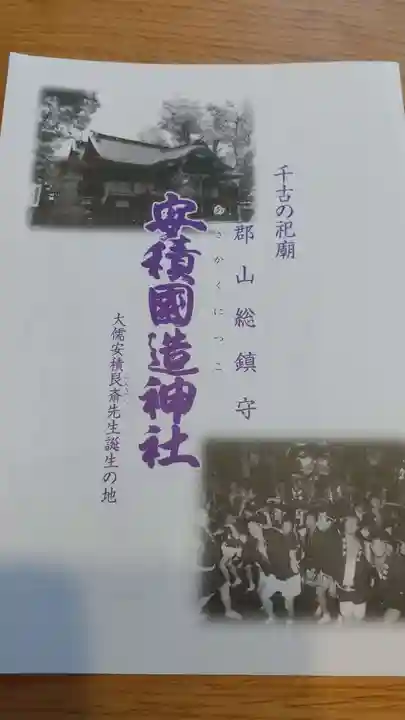 千古の祀廟
郡山総鎮守
あさかくにつこ
安積國造神社
大儒安積艮斎先生誕生の地
ごんさい